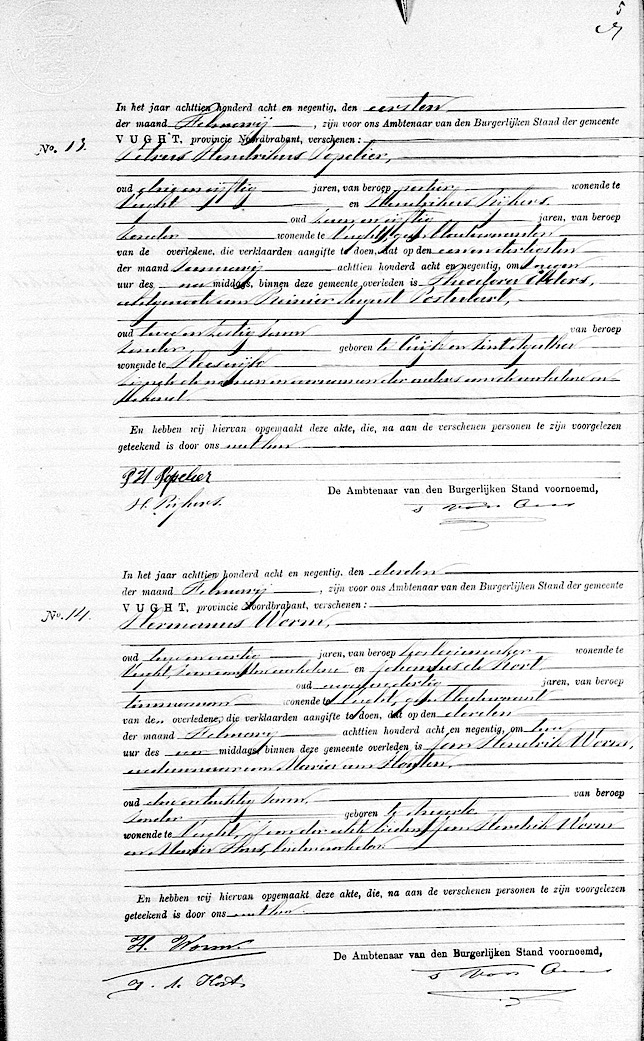 5
In het jaar achttien honderd acht en negentig, den eersten
der maand Februarij, zijn voor ons Ambtenaar van den Burgerlijken Stand der gemeente
No. 13. VUGHT, provincie Noordbrabant, verschenen:
Petrus Hendrikus Popelier,
oud jaren, van beroep wonende te
Vught en Hendrikus Pijkers
oud jaren, van beroep
zonder wonende te Vught, geen bloedverwanten
van de overledene, die verklaarden aangifte te doen, dat op den een en dertigsten
der maand Januarij achttien honderd acht en negentig, om negen
uur des na middags, binnen deze gemeente overleden is Theodora Ebbers,
echtgenoote van Reinier August
oud twee en zestig jaren van beroep
zonder, geboren te Cuijk en Sint Agatha
wonende te
zijnde de namen en voornamen der ouders aan de aangevers on-
bekend.
En hebben wij hiervan opgemaakt deze akte, die, na aan de verschenen personen te zijn voorgelezen
geteekend is door ons met hen
P H Popelier
H. Pijkers.
De Ambtenaar van den Burgerlijken Stand voornoemd,
In het jaar achttien honderd acht en negentig, den derden
der maand Februarij, zijn voor ons Ambtenaar van den Burgerlijken Stand der gemeente
No. 14. VUGHT, provincie Noordbrabant, verschenen:
Hermanus Worm,
oud jaren, van beroep wonende te
Vught, zoon van den overledene en Johannes de Kort
oud negen en dertig jaren, van beroep
timmerman wonende te Vught, geen bloedverwant
van den overledene, die verklaarden aangifte te doen, dat op den derden
der maand Februarij achttien honderd acht en negentig, om twee
uur des voor middags, binnen deze gemeente overleden is Jan Hendrik Worm,
weduwnaar van Maria van Houten,
oud drie en tachtig jaren, van beroep
zonder geboren te
wonende te Vught, zoon der echtelieden Jan Hendrik Worm
en Maria beiden overleden
En hebben wij hiervan opgemaakt deze akte, die, na aan de verschenen personen te zijn voorgelezen
geteekend is door ons met hen.
H. Worm.
J. de Kort
De Ambtenaar van den Burgerlijken Stand voornoemd,